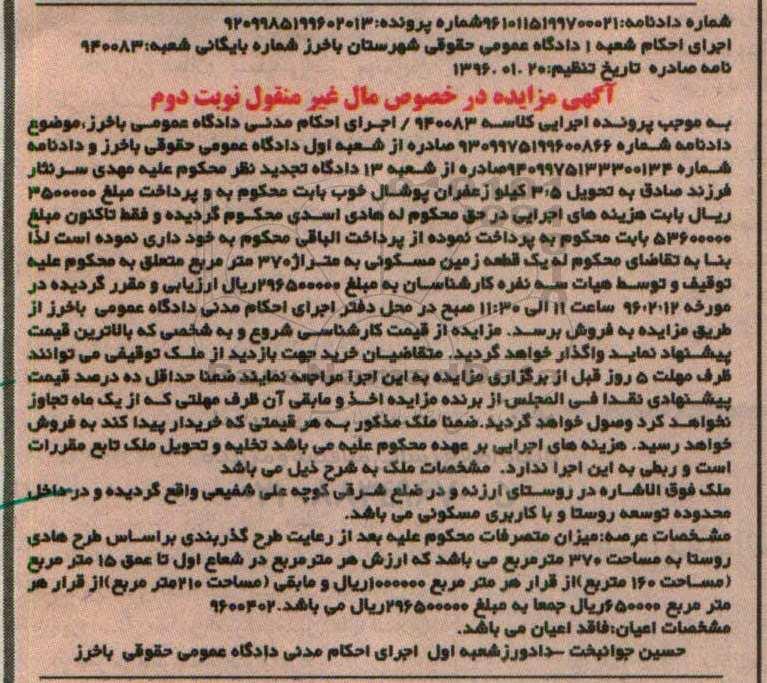 شماره دادنامه:۹۶۱۰۱۱۵۱۹۹۷۰۰۰۲۱شماره پرونده:۹۲۰۹۹۸۵۱۹۹۶۰۲۰۱۳
اجرای احکام شعبه ۱ دادگاه عمومی حقوقی شهرستان باخرز شماره بایگانی شعبه:۹۴۰۰۸۳
نامه صادره تاریخ تنظیم:۲۰ .۰۱ .۱۳۹۶
آگهی مزایده در خصوص مال غیر منقول نوبت دوم
به موجب پرونده اجرایی کلاسه ۹۴۰۰۸۳ / اجرای احکام مدنی دادگاه عمومی باخرز،موضوع
دادنامه شماره ۹۳۰۹۹۷۵۱۹۹۶۰۰۸۶۶ صادره از شعبه اول دادگاه عمومی حقوقی باخرز و دادنامه
شماره ۹۴۰۹۹۷۵۱۳۳۳۰۰۱۳۴صادره از شعبه ۱۳ دادگاه تجدید نظر محکوم علیه مهدی سرنثار
فرزند صادق به تحویل ۳/۵ کیلو زعفران پوشال خوب بابت محکوم به و پرداخت مبلغ ۳۵۰۰۰۰۰
ریال بابت هزینه های اجرایی در حق محکوم له هادی اسدی محکوم گردیده و فقط تاکنون مبلغ
۵۳۶۰۰۰۰۰ بابت محکوم به پرداخت نموده از پرداخت الباقی محکوم به خود داری نموده است لذا
بنا به تقاضای محکوم له یک قطعه زمین مسکونی به متراژ۳۷۰ متر مربع متعلق به محکوم علیه
توقیف و توسط هیات سه نفره کارشناسان به مبلغ ۲۹۶۵۰۰۰۰۰ریال ارزیابی و مقرر گردیده در
مورخه ۹۶/۲/۱۲ ساعت ۱۱ الی ۱۱:۳۰ صبح در محل دفتر اجرای احکام مدنی دادگاه عمومی باخرز از
طریق مزایده به فروش برسد. مزایده از قیمت کارشناسی شروع و به شخصی که بالاترین قیمت
پیشنهاد نماید واگذار خواهد گردید. متقاضیان خرید جهت بازدید از ملک توقیفی می توانند
ظرف مهلت ۵ روز قبل از برگزاری مزایده به این اجرا مراجعه نمایند ضمنا حداقل ده درصد قیمت
پیشنهادی نقدا فی المجلس از برنده مزایده اخذ و مابقی آن ظرف مهلتی که از یک ماه تجاوز
نخواهد کرد وصول خواهد گردید.ضمنا ملک مذکور به هر قیمتی که خریدار پیدا کند به فروش
خواهد رسید. هزینه های اجرایی بر عهده محکوم علیه می باشد تخلیه و تحویل ملک تابع مقررات
است و ربطی به این اجرا ندارد. مشخصات ملک به شرح ذیل می باشد
ملک فوق الاشاره در روستای ارزنه و در ضلع شرقی کوچه علی شفیعی واقع گردیده و در داخل
محدوده توسعه روستا و با کاربری مسکونی می باشد.
مشخصات عرصه:میزان متصرفات محکوم علیه بعد از رعایت طرح گذربندی براساس طرح هادی
روستا به مساحت ۳۷۰ مترمربع می باشد که ارزش هر مترمربع در شعاع اول تا عمق ۱۵ متر مربع
(مساحت ۱۶۰ متربع)از قرار هر متر مربع ۱۰۰۰۰۰۰ریال و مابقی (مساحت ۲۱۰متر مربع)از قرار هر
متر مربع ۶۵۰۰۰۰ریال جمعا به مبلغ ۲۹۶۵۰۰۰۰۰ریال می باشد.۹۶۰۰۴۰۲
مشخصات اعیان:فاقد اعیان می باشد.
حسین جوانبخت –دادورزشعبه اول اجرای احکام مدنی دادگاه عمومی حقوقی باخرز